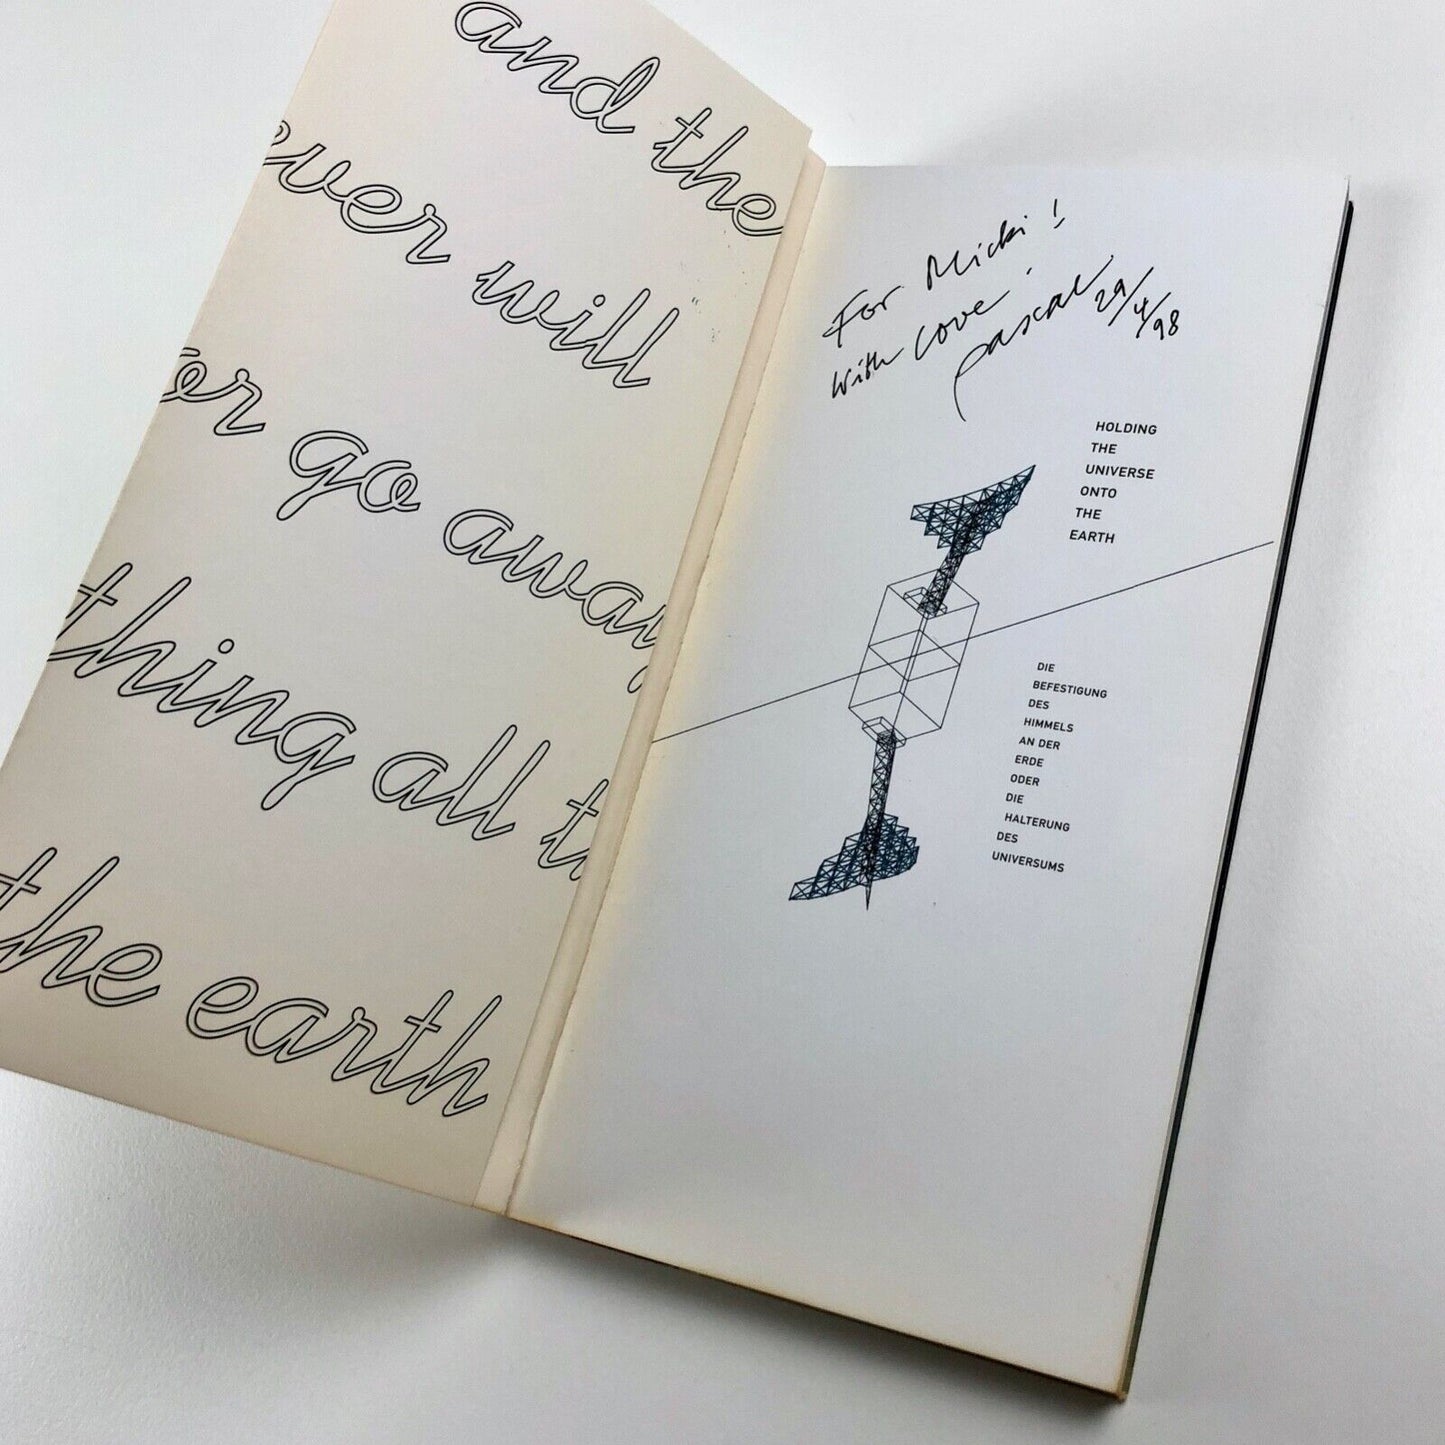 and the
ever will
er go away
thing all t
the earth
For Micki !
With Love !
Pascal 29/4/98
HOLDING
THE
UNIVERSE
ONTO
THE
EARTH
DIE
BEFESTIGUNG
DES
HIMMELS
AN DER
ERDE
ODER
DIE
HALTERUNG
DES
UNIVERSUMS